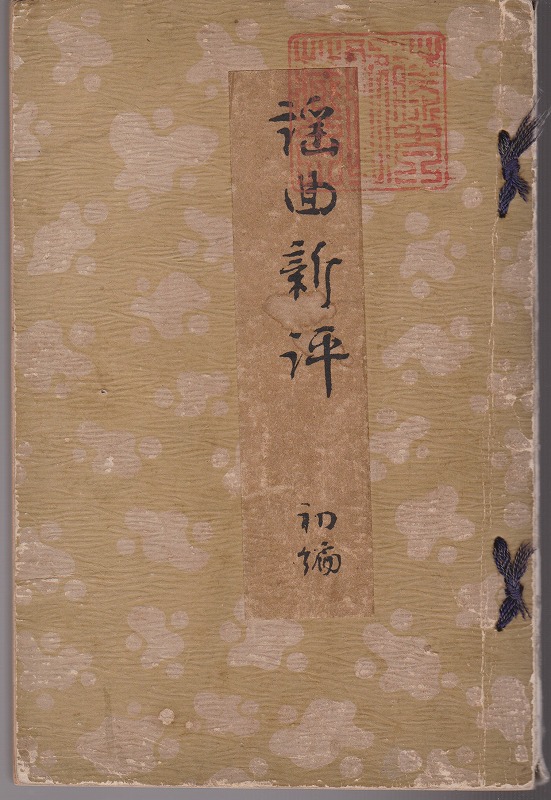 謡曲新評
初編